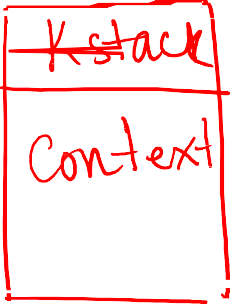 Kstack
Context